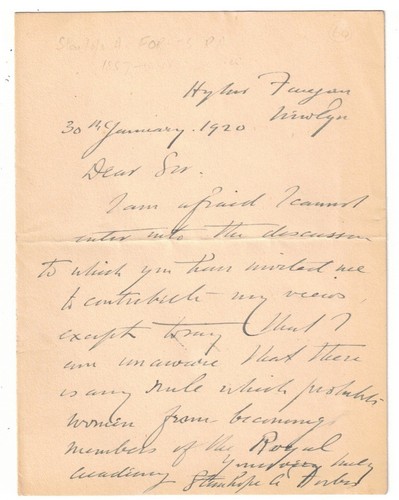 Stanhope A. FORBES RA
1857-
Higher Faugan
Newlyn
30th January. 1920
Dear Sir.
I am afraid I cannot
enter into the discussion
to which you have invited me
to contribute my views
except to say that I
am unaware that there
is any rule which prohibits
women from becoming
members of the Royal
Academy Yours very truly
Stanhope A Forbes